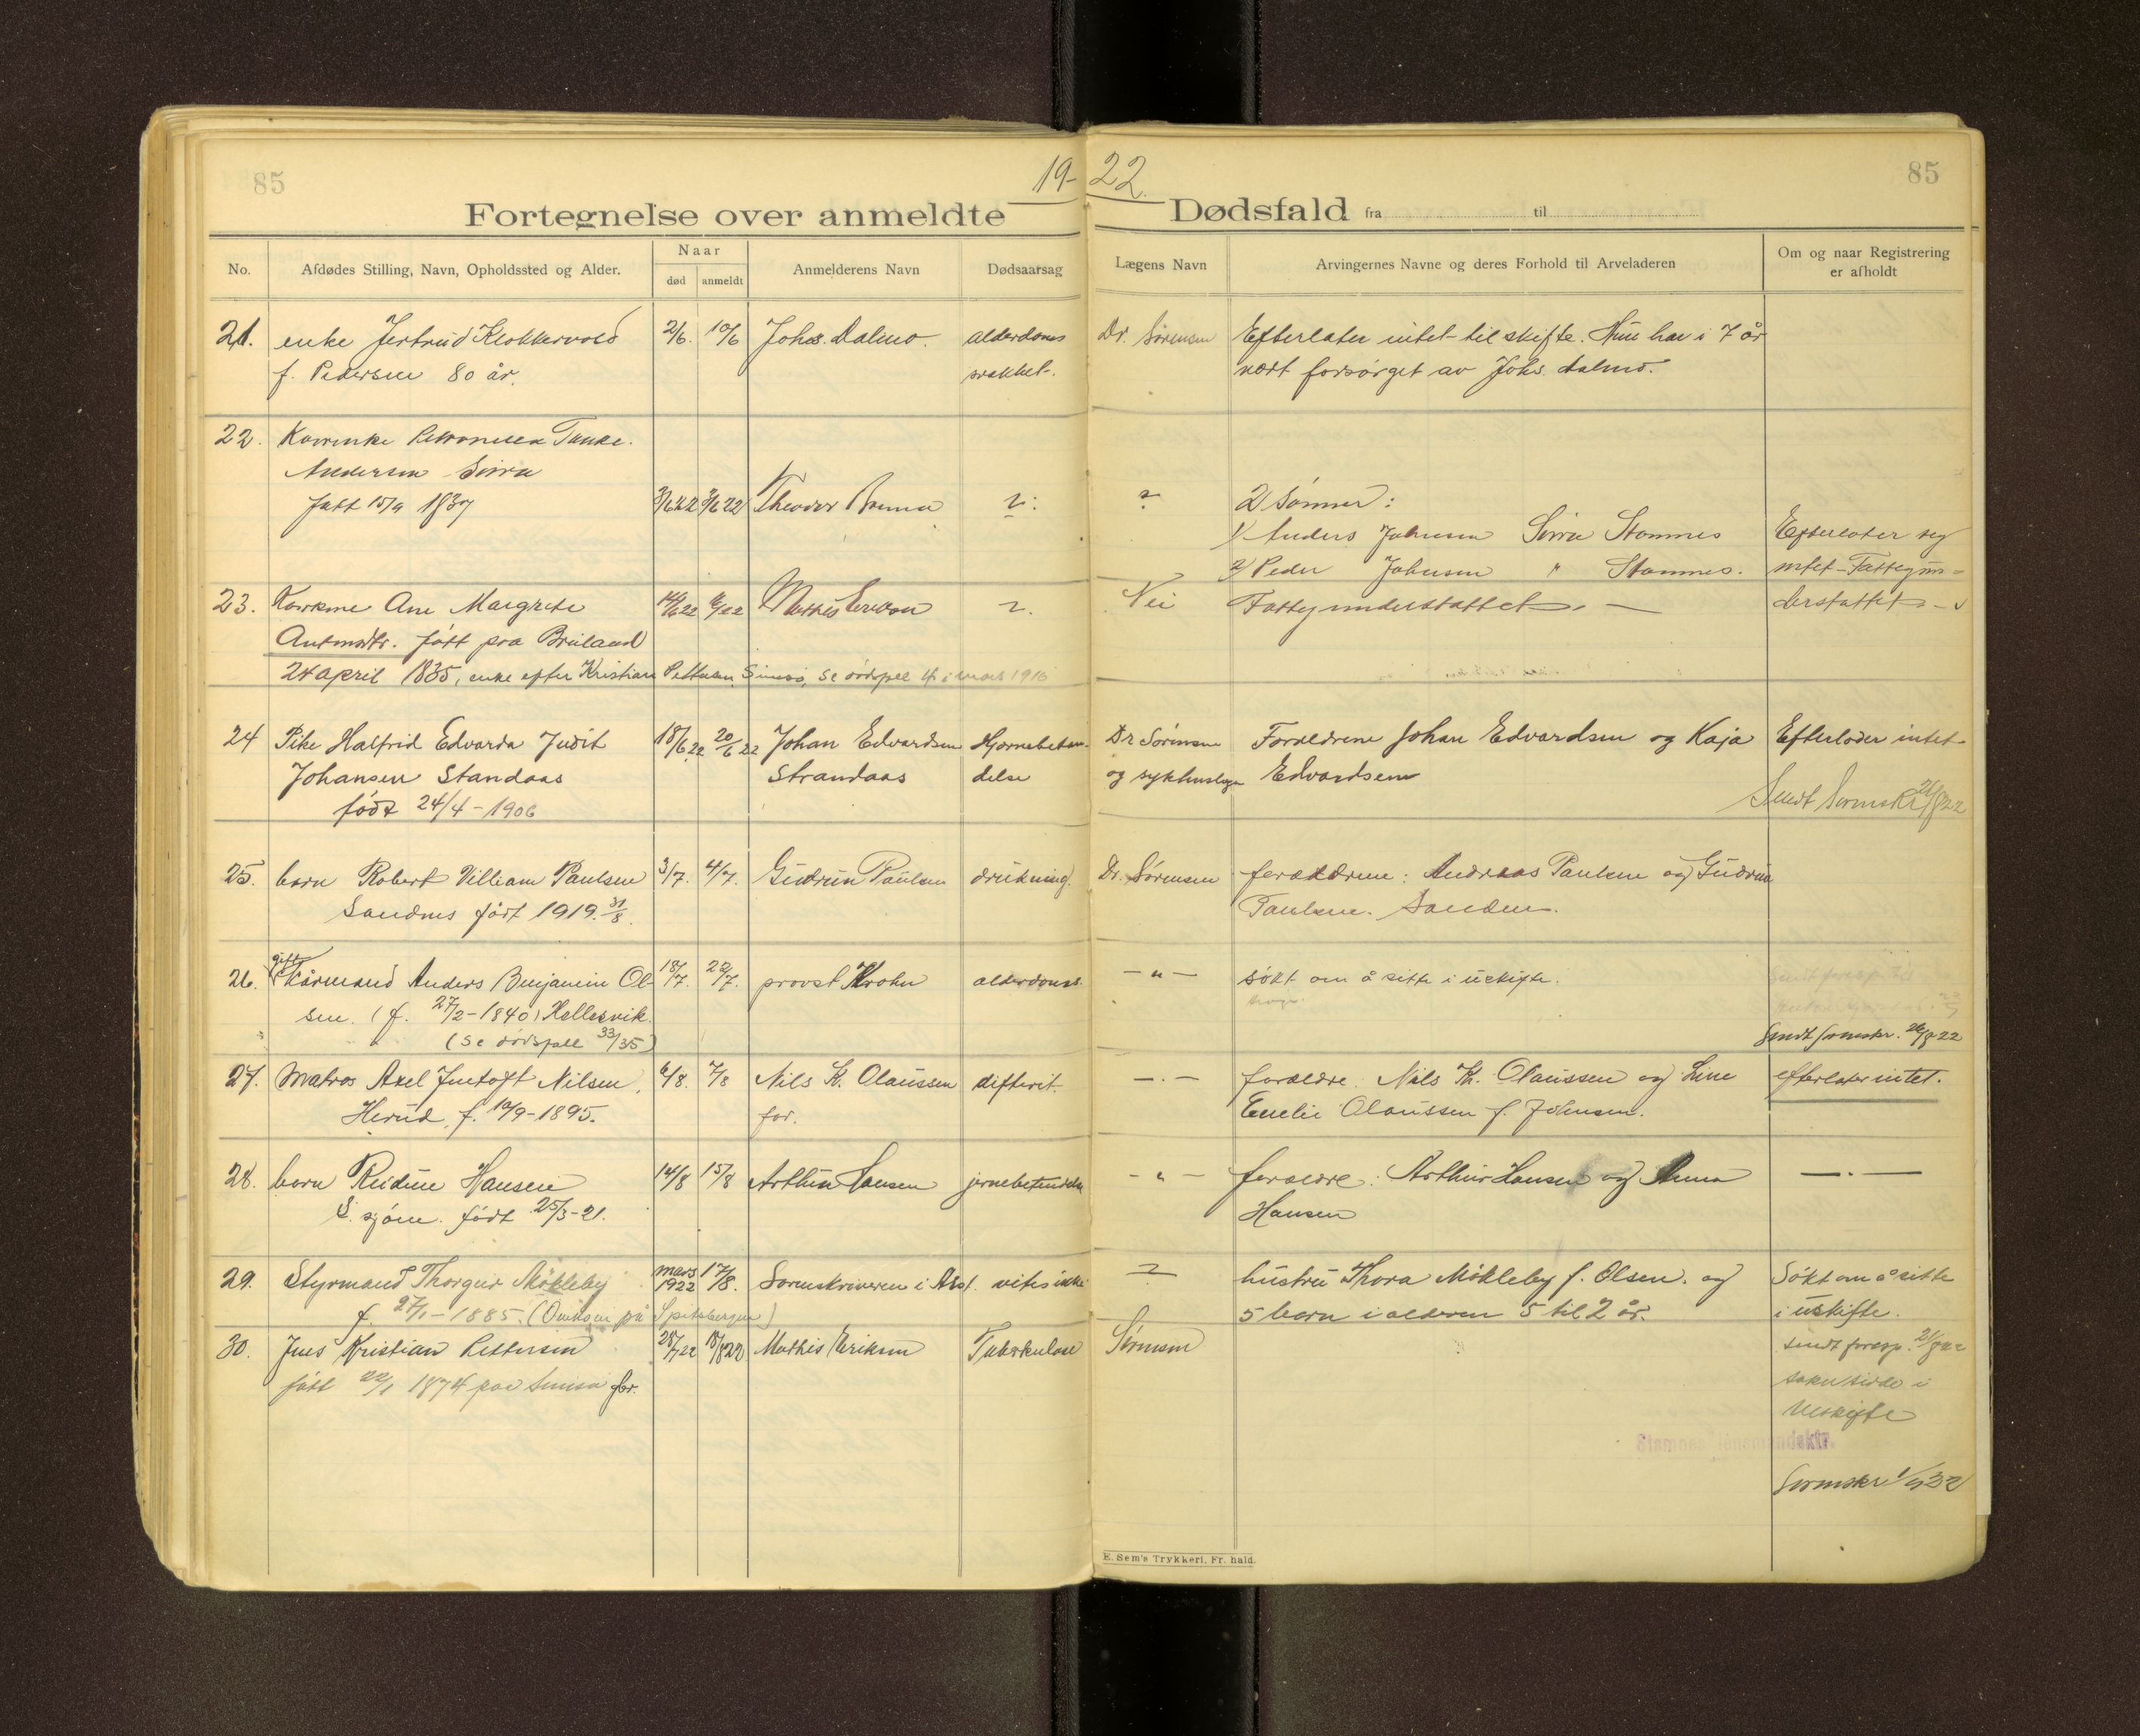 85
19-22.
85
Fortegnelse over anmeldte Dødsfald fra til
No.
Afdødes Stilling, Navn, Opholdssted og Alder.
Naar
død
anmeldt
Anmelderens Navn
Dødsaarsag
Lægens Navn
Arvingernes Navne og deres Forhold til Arveladeren
Om og naar Registrering
er afholdt
21. enke Jertrud Klokkervold 2/6. 10/6 Johs. Dalmo. alderdoms Dr. Sørensen Efterlater intet til skifte. Hun har i 7 år
f. Pedersen 80 år. svakhet. vært forsørget av Johs. Dalmo.
22. Kårenke Petronelea Tanke.
Andersen
født 15/9 1837 3/6 22 3/6 22 Theodor ? ? 2 Sønner:
1/ Anders Johnsen Stamnes Efterlater seg
2/ Peder Johnsen " Stamnes. intet Fattigun-
23. Ane Margrete 14/6 22 22 Mathis Erikson ? Nei Fattigunderstøttet. — derstøttet
Antonsdtr. født paa Breiland
24 april 1835, enke efter Kristian Pettersen, se dødsfall 4 i mars 1916
24 Pike Halfrid Edvarda Judit 18/6 22 20/6 22 Johan Edvardsen Hjernebeten- Dr Sørensen Foreldrene Johan Edvardsen og Kaja Efterlader intet
Johansen Standaas Strandaas delse og sykehuslege Edvardsen
født 24/4-1906 Sendt Sorenskr
25. barn Robert Villiam Paulsen 3/7. 4/7. Gudrun Paulsen drukning. Dr. Sørensen foreldrene: Andreas Paulsen og Gudrun
Sandnes født 1919. 31/8. Paulsen.
26. gift Kårmand Anders Benjamin Ol- 18/7. 22/7. provst Krohn alderdoms. —"— søkt om å sitte i uskifte.
sen. (f. 27/2-1840) Hellesvik.
(se dødsfall 33/35) Sendt sorenskr. 22
27. Matros Axel Jentoft Nilsen, 6/8. 7/8 Nils K. Olaussen difterit. —.— foreldre Nils K. Olaussen og Line efterlater intet.
Herud, f. 10/9-1895. far. Emelie Olaussen f. Johnsen.
28. barn Reidun Hansen 14/8 15/8 Arthur Hansen jernebetendelse -"- foreldre: Arthur Hansen og Anna —.—
født 25/3-21. Hansen
29. Styrmand Thorgeir Møkleby mars 1922 17/8. Sorenskriveren i vites ikke hustru Thora Møkleby f. Olsen. og Søkt om å sitte
f. 27/1-1885. (Omkom på Spitsbergen) 5 barn i alderen 5 til 2 år. i uskifte.
30. Jens Kristian Pettersen 28/7 22 18/8 22 Mathis Eriksen Tuberkulose Sørensen sendt foresp.
født 22/1 1874 paa far. i
Uskifte
Stamnes
Sorenskr
E. Sem's Trykkeri, Fr. hald.